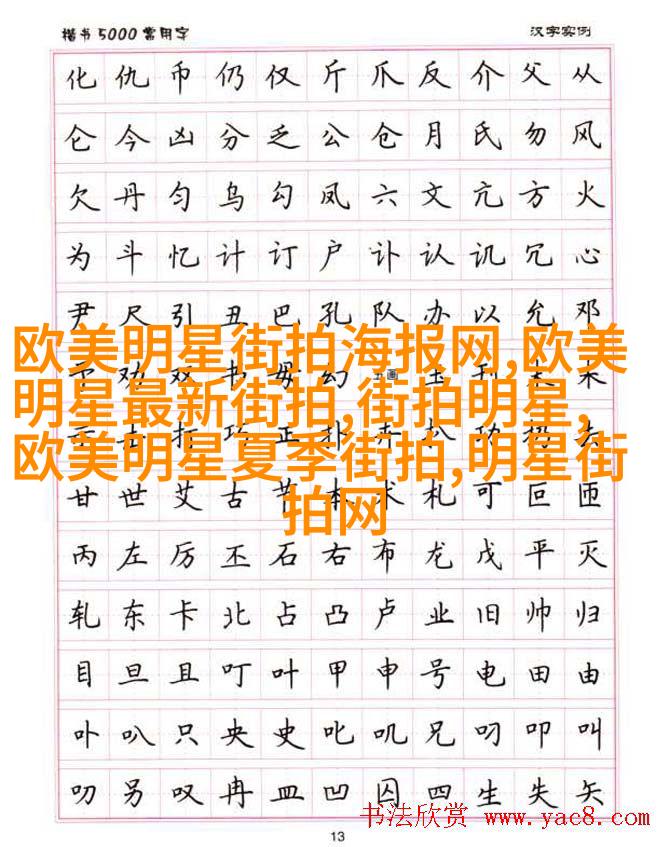 楷书5000常用字 汉字实例
化仇币仍仅斤爪反介父从
仑今凶分乏公仓月氏勿风
欠丹匀乌勾凤六文亢方火
为斗忆计订户讣认讥冗心
尹尺引丑巴孔队办以允邓
欧美明星街拍海报网,欧美
明星最新街拍,街拍明星,
欧美明星夏季街拍,明星街
拍网
甘世艾古节本术札可叵匝
丙左厉丕石右布龙戊平灭
轧东卡北占凸卢业旧帅归
目旦且叮叶甲申号电田由
卟叭只央史叱叽兄叼叩叫
叨另叹冉皿凹囚四生失矢
书法欣赏 www.yac8.com
13